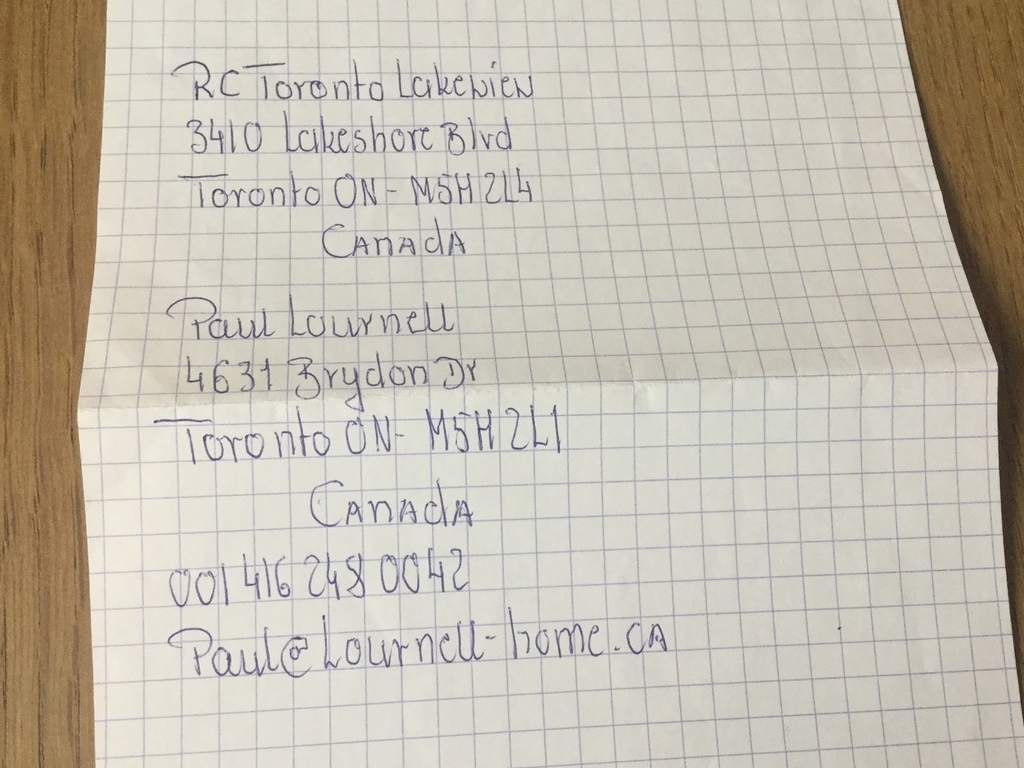 RC Toronto Lakeview
3410 Lakeshore Blvd
Toronto ON - M5H 2L4
Canada
Paul Lournell
4631 Brydon Dr
Toronto ON - M5H 2L1
Canada
001 416 248 0042
Paul@Lournell-home.ca